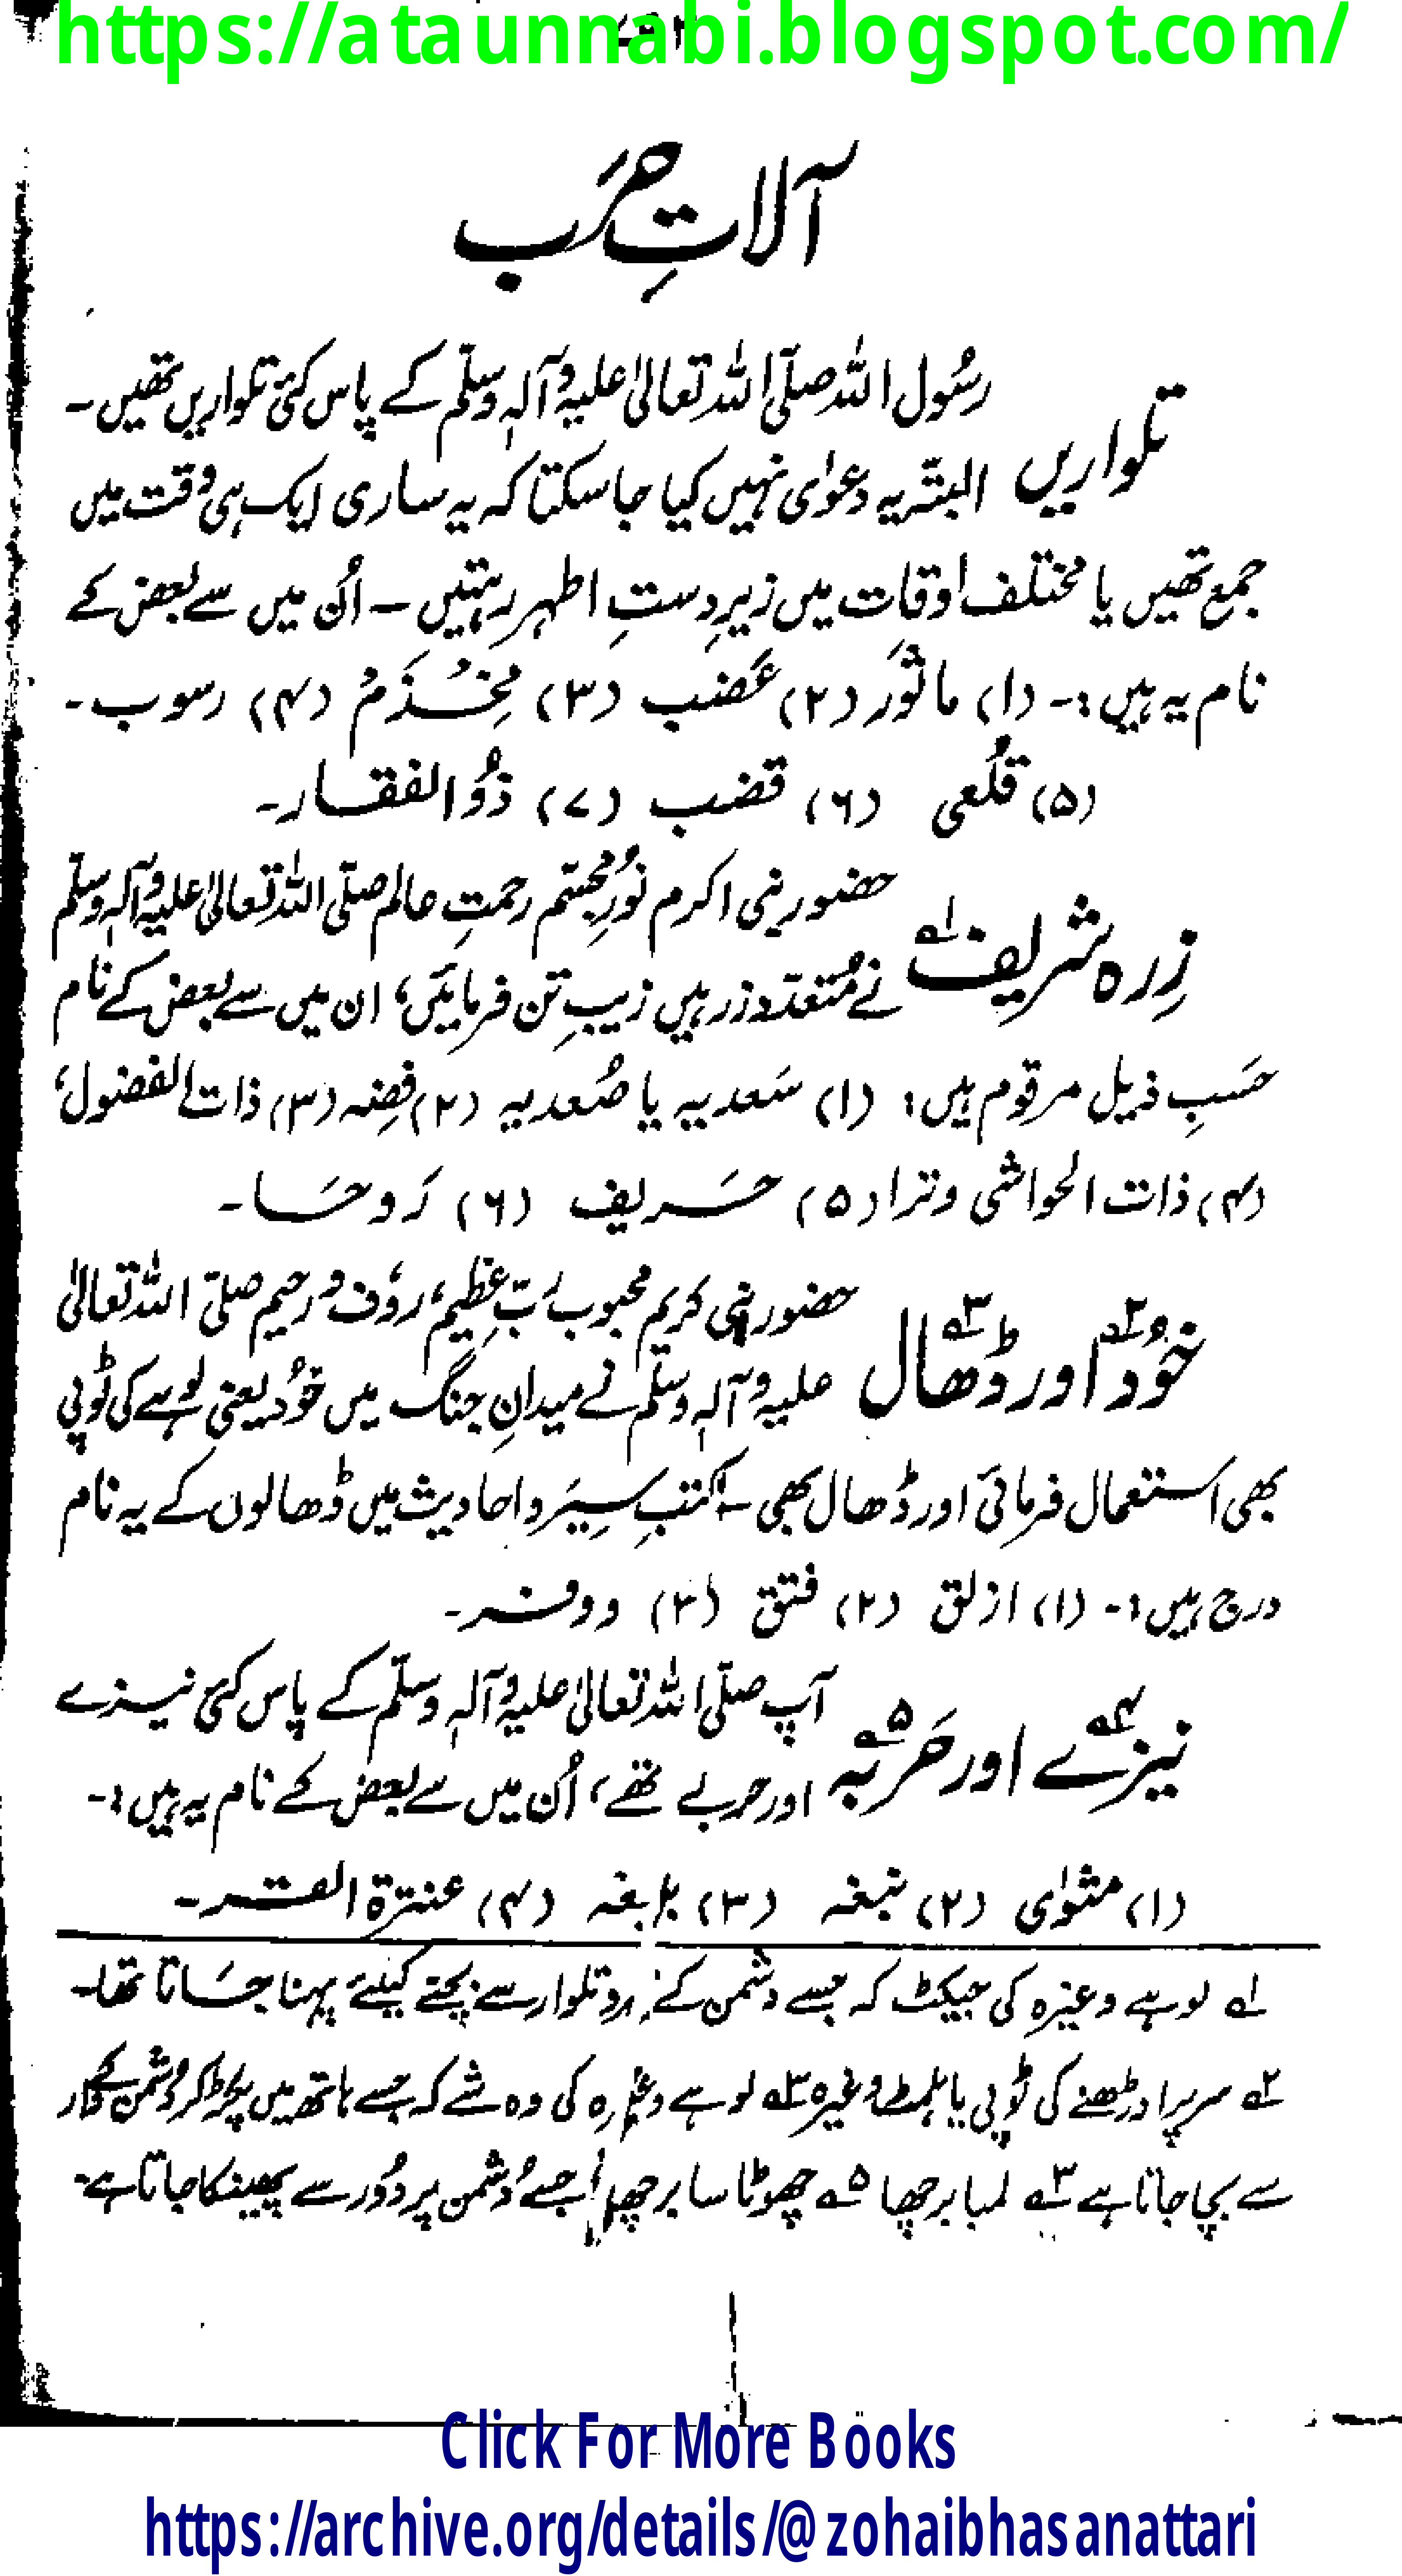 https://ataunnabi.blogspot.com/
آلاتِ حَرَب
تلواریں
رسُول اللہ صلّی اللہ تعالیٰ علیہ وآلہٖ وسلّم کے پاس کئی تلواریں تھیں۔
البتّہ یہ دعوٰی نہیں کیا جا سکتا کہ یہ ساری ایک ہی وقت میں
جمع تھیں یا مختلف اوقات میں زیرِ دستِ اطہر رہتیں۔ اُن میں سے بعض کے
نام یہ ہیں :۔ (۱) ماثوَر (۲) عَضب (۳) مِخُذَمْ (۴) رسوب۔
(۵) قلُعی (۶) قضب (۷) ذُوالفقار۔
زِرہ شریف ۱ے
حضور نبی اکرم نُورِ مجسّم رحمتِ عالم صلّی اللہ تعالیٰ علیہ وآلہٖ وسلّم
نے مُتعدّد زرہیں زیبِ تن فرمائیں، ان میں سے بعض کے نام
حسَبِ ذیل مرقوم ہیں : (۱) سَعدیہ یا صُعدیہ (۲) فِضہ (۳) ذات الفضول،
(۴) ذات الحواشی وتراد (۵) حسَریف (۶) رَوحسَا۔
خوُد ۲ے اور ڈھال ۳ے
حضور نبی کریم محبوب ربّ عظیم، روٗف و رحیم صلّی اللہ تعالیٰ
علیہ وآلہٖ وسلّم نے میدانِ جنگ میں خوُد یعنی لوہے کی ٹوپی
بھی استعمال فرمائی اور ڈھال بھی۔ کتبِ سِیَر و احادیث میں ڈھالوں کے یہ نام
درج ہیں :۔ (۱) ازلق (۲) فتق (۳) ووفر۔
نیزے ۴ے اور حَربہ ۵ے
آپ صلّی اللہ تعالیٰ علیہ وآلہٖ وسلّم کے پاس کئی نیزے
اور حربے تھے، اُن میں سے بعض کے نام یہ ہیں :۔
(۱) مثوٰی (۲) نبغہ (۳) بلابغہ (۴) عنترۃ القتر۔
۱ے لوہے وغیرہ کی جیکٹ کہ جسے دشمن کے نیزہ وتلوار سے بچنے کیلئے پہنا جسَاتا تھا۔
۲ے سر پر اوڑھنے کی ٹوپی یا ہلمٹ وغیرہ ۳ے لوہے وغیرہ کی وہ شے کہ جسے ہاتھ میں پکڑ کر دُشمن کے وار
سے بچا جاتا ہے ۴ے لمبا برچھا ۵ے چھوٹا سا برچھا جسے دُشمن پر دُور سے پھینکا جاتا ہے۔
Click For More Books
https://archive.org/details/@zohaibhasanattari